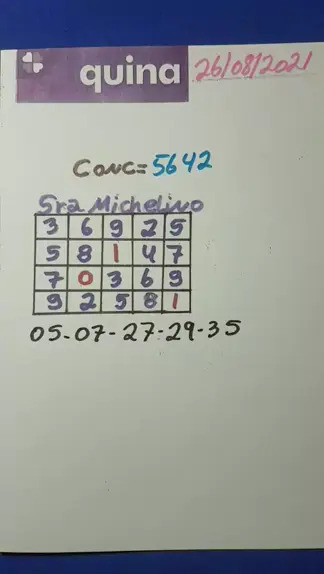 quina 26/08/2021
Conc=5642
Sra Michelino
3 6 9 2 5
5 8 1 4 7
7 0 3 6 9
9 2 5 8 1
05-07-27-29-35